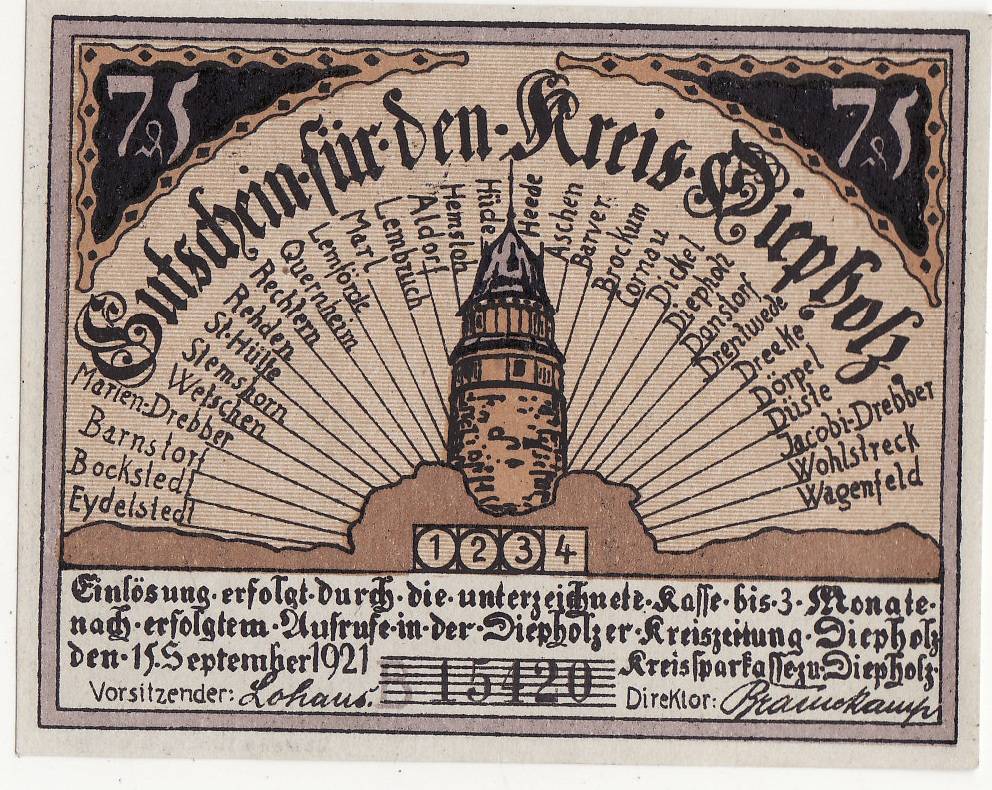 75
75
Gutschein·für·den·Kreis·Diepholz
Eydelstedt
Bockstedt
Barnstorf
Marien-Drebber
Wetschen
Stemshorn
St·Hülfe
Rehden
Rechtern
Quernheim
Lemförde
Marl
Lembruch
Aldorf
Hemsloh
Hüde
Heede
Aschen
Barver
Brockum
Cornau
Dickel
Diepholz
Donstorf
Drentwede
Dreeke
Dörpel
Düste
Jacobi-Drebber
Wohlstreck
Wagenfeld
1 2 3 4
Einlösung·erfolgt·durch·die·unterzeichnete·Kasse·bis·3·Monate·
nach·erfolgtem·Aufrufe·in·der·Diepholzer·Kreiszeitung·Diepholz
den·15.September 1921
Kreissparkasse zu·Diepholz·
B 15420
Vorsitzender: Lohaus.
Direktor: Bramkamp